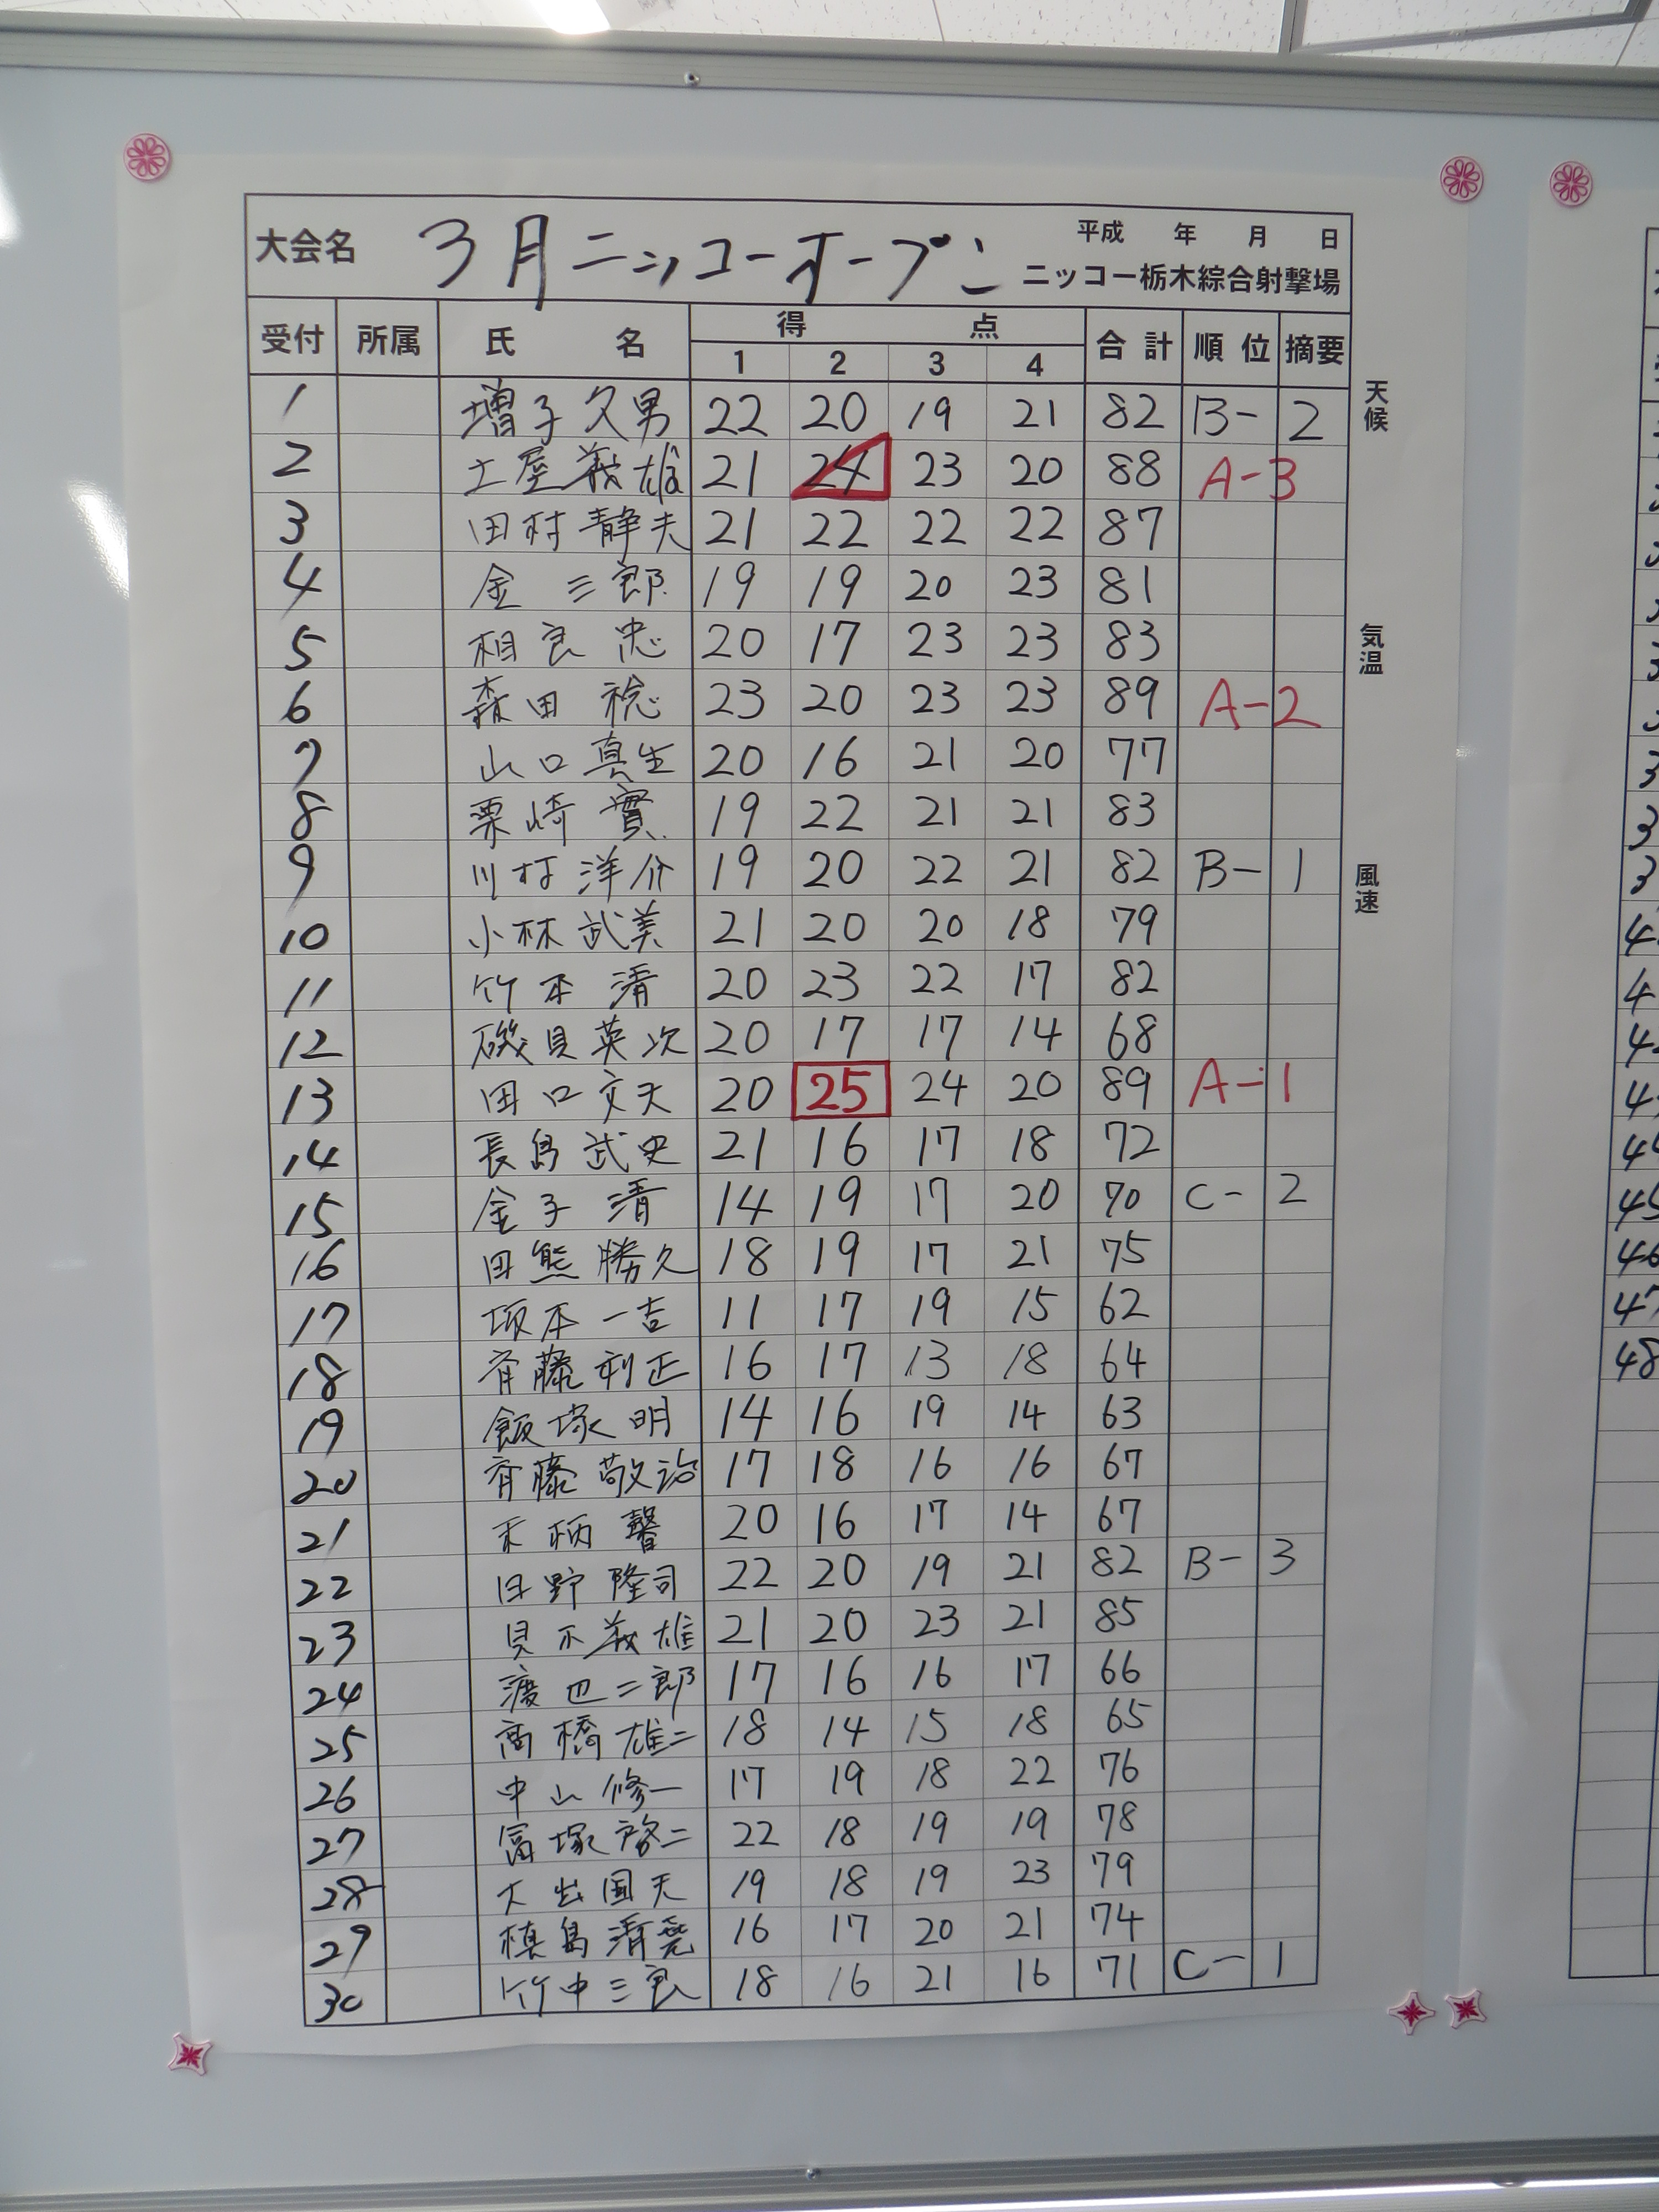 大会名 3月ニッコーオープン 平成 年 月 日
ニッコー栃木綜合射撃場
受付 所属 氏 名 得 点 合計 順位 摘要
1 2 3 4
1 増子久男 22 20 19 21 82 B- 2
2 土屋義雄 21 24 23 20 88 A-3
3 田村静夫 21 22 22 22 87
4 金 三郎 19 19 20 23 81
5 相良 忠 20 17 23 23 83
6 森田 稔 23 20 23 23 89 A-2
7 山口真生 20 16 21 20 77
8 栗崎 實 19 22 21 21 83
9 川村洋介 19 20 22 21 82 B- 1
10 小林武美 21 20 20 18 79
11 竹本 清 20 23 22 17 82
12 磯貝英次 20 17 17 14 68
13 田口文夫 20 25 24 20 89 A-1
14 長島武史 21 16 17 18 72
15 金子 清 14 19 17 20 70 C- 2
16 田熊勝久 18 19 17 21 75
17 坂本一吉 11 17 19 15 62
18 斉藤利正 16 17 13 18 64
19 飯塚 明 14 16 19 14 63
20 斉藤敬治 17 18 16 16 67
21 馨 20 16 17 14 67
22 日野隆司 22 20 19 21 82 B- 3
23 義雄 21 20 23 21 85
24 渡辺二郎 17 16 16 17 66
25 高橋雄二 18 14 15 18 65
26 中山修一 17 19 18 22 76
27 富塚啓二 22 18 19 19 78
28 大出国夫 19 18 19 23 79
29 槙島清堯 16 17 20 21 74
30 竹中三良 18 16 21 16 71 C- 1
天候
気温
風速
45
46
47
48